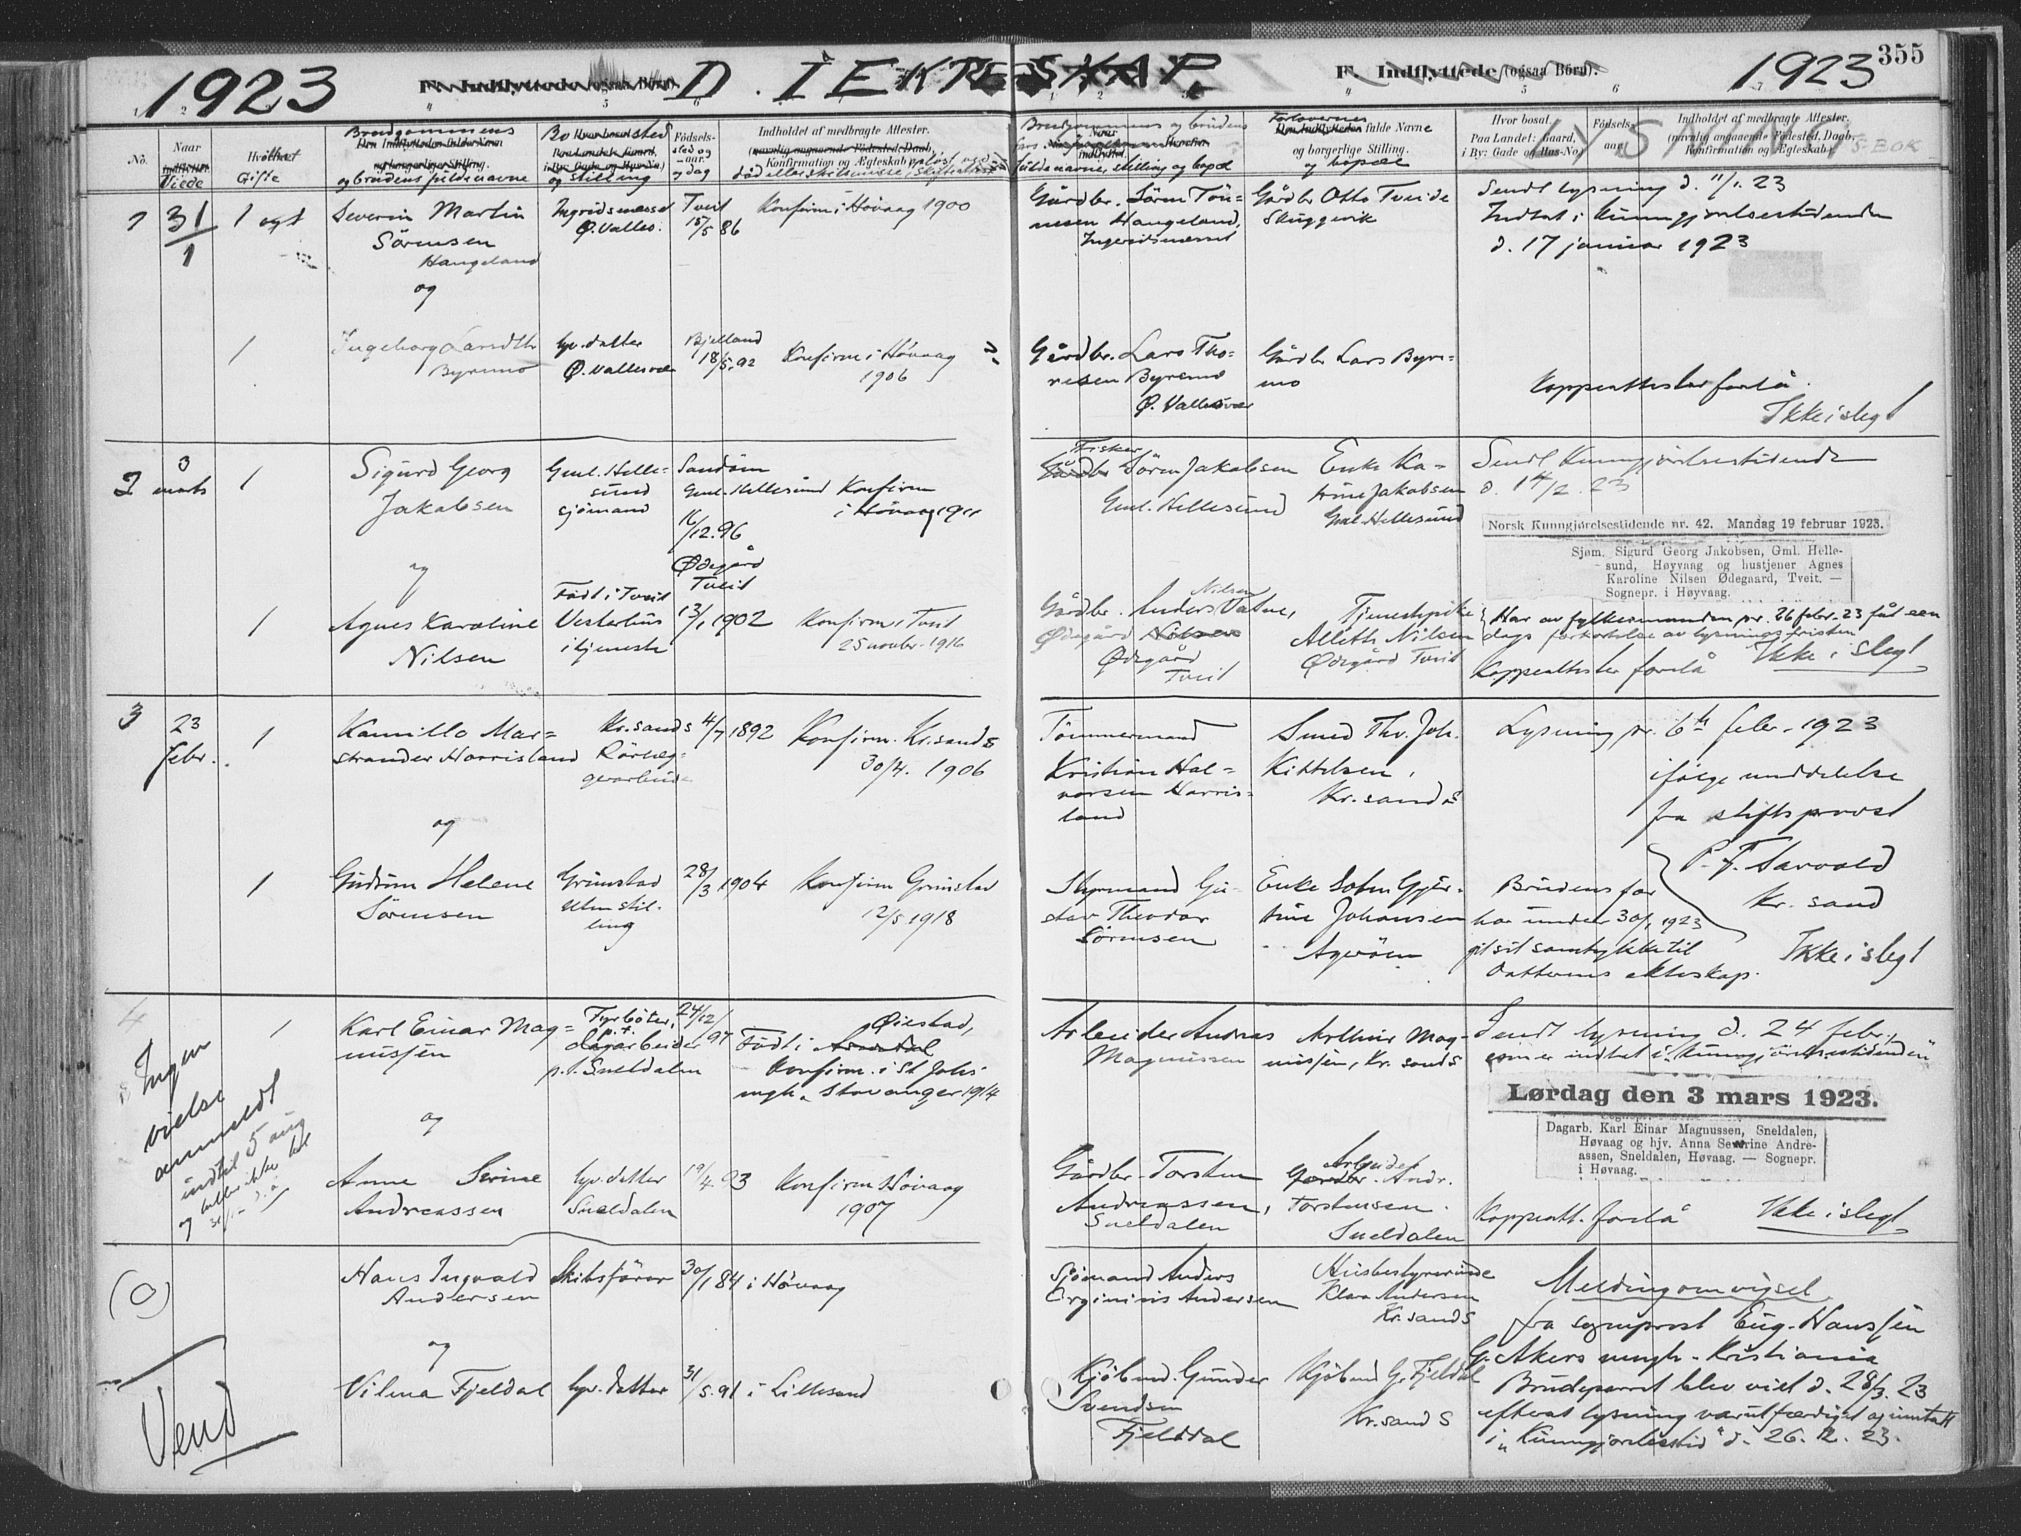 1923
D. I EKTESKAP.
F. Indflyttede (ogsaa Börn).
1923
355
No.
Naar
Viede
Gifte
Brudgommens
og brudens fulde navne
Bosted
og stilling
Födsels-
sted og
-aar.
og dag
Indholdet af medbragte Attester.
(navnlig angaaende Födested, Daab,
Konfirmation og Ægteskab)
Brudgommens og brudens
fars
fulde navne, stilling og bopæl
Forlovernes
fulde Navne
og borgerlige Stilling.
og bopæl
Hvor bosat.
Paa Landet: Gaard,
i By: Gade og Hus-No.
Födsels-
aar.
Indholdet af medbragte Attester.
(navnlig angaaende Födested, Daab,
Konfirmation og Ægteskab)
1
31/1
1 ogt
Severin Martin
Sörensen
Haugeland
Ø. Valles.
Tveit
15/5 86
Konfirm i Hövaag 1900
Gårdbr. Sören Tön-
nesen Haugeland,
Gårdbr Otto Tveide
Skuggevik
Sendt lysning d. 11/1. 23
Indtat i kunngjörelsestidenden
d. 17 januar 1923
og
1
Ingeborg
Byremo
hv. datter
Ø. Vallesvær
Bjelland
18/5. 92
Konfirm i Hövaag
1906
Gårdbr. Lars Tho-
resen Byremo
Ø. Vallesvær
Gårdbr Lars Byre-
mo
Koppeattester forelå.
Ikke i slegt
2
3
mars
1
Sigurd Georg
Jakobsen
Gml. Helle-
sund
sjömand
Gml. Hellesund
16/12. 96
Konfirm
i Hövaag 1911
Fisker
Sören Jakobsen
Gml. Hellesund
Enke Ka-
trine Jakobsen
Gml. Hellesund
Sendt Kunngjörelsestidende
d. 14/2. 23
Norsk Kunngjørelsestidende nr. 42. Mandag 19 februar 1923.
Sjøm. Sigurd Georg Jakobsen, Gml. Helle-
sund, Høyvaag og hustjener Agnes
Karoline Nilsen Ødegaard, Tveit. —
Sognepr. i Høyvaag.
og
1
Agnes Karoline
Nilsen
Født i Tveit
Vesterhus
i tjeneste
Ødegård
Tveit
13/1 1902
Konfirm i Tveit
25 novbr. 1916
Gårdbr. Anders Vatne,
Nilsen
Ødegård
Tveit
Tjenestepike
Alleth Nilsen
Ødegård Tveit
Har av fylkesmanden pr. 26 febr. 23 fåt een
dags forkortelse av lysningsfristen
Koppeattester forelå
Ikke i slegt
3
23
febr.
1
Kamillo Mar-
strander Harrisland
Kr.sand S
Rörlæg-
gerarbeider
4/7 1892
Konfirm. Kr.sand S
30/4. 1906
Tömmermand
Kristian Hal-
vorsen Harris-
land
Smed Thv. Joh.
Kittelsen,
Kr.sand S
Lysning pr. 6te febr. 1923
ifölge meddelelse
fra stiftsprovst
Kr. sand
og
1
Gudrun Helene
Sörensen
Grimstad
uten stil-
ling
28/3 1904
Konfirm Grimstad
12/5 1918
Styrmand Gu-
stav Theodor
Sörensen
Enke
Johansen
Ageröen
Brudens far
har under 30/1 1923
git sit samtykke til
datterens ekteskap.
Ikke i slegt
4
Ingen
vielse
anmeldt
indtil 5 aug
1
Karl Einar Mag-
nussen
Fyrböter,
p.t.
dagarbeider
p.t. Sneldalen
24/12 97
Øiestad,
Født i Arendal
Konfirm. i St Johs
mgh. Stavanger 1914
Arbeider Andreas
Magnussen
Arthur Mag-
nussen, Kr. sand S
Sendt lysning d. 24 febr.,
som er indtat i „Kunngjörelsestidenden"
Lørdag den 3 mars 1923.
Dagarb. Karl Einar Magnussen, Sneldalen,
Høvaag og hjv. Anna Severine Andre-
assen, Sneldalen, Høvaag. — Sognepr.
i Høvaag.
og
Anne Serine
Andreassen
hv. datter
Sneldalen
19/4. 93
Konfirm Hövaag
1907
Gårdbr. Torsten
Andreassen,
Sneldalen
Arbeider
Andr.
Torstensen.
Sneldalen
Koppeatt. forelå
Ikke i slegt
(0)
Hans Ingvald
Andersen
Skibsförer
30/1 84 i Hövaag
Sjömand Anders
Andersen
Husbestyrerinde
Klara Andersen
Kr.sand S
Melding om vigsel
fra sogneprest Eug. Hanssen
G. Akers mngh. Kristiania
Brudeparret blev viet d. 28/3. 23
efterat lysning var utfærdiget og inntatt
i „Kunngjörelsestid" d. 26. 2. 23.
og
Vilma Fjeldal
hv. datter
31/5. 91 i Lillesand
Kjöbmd. Gunder
Svendsen
Fjelddal
Kjöbmd G. Fjeldal
Kr.sand S
Vend